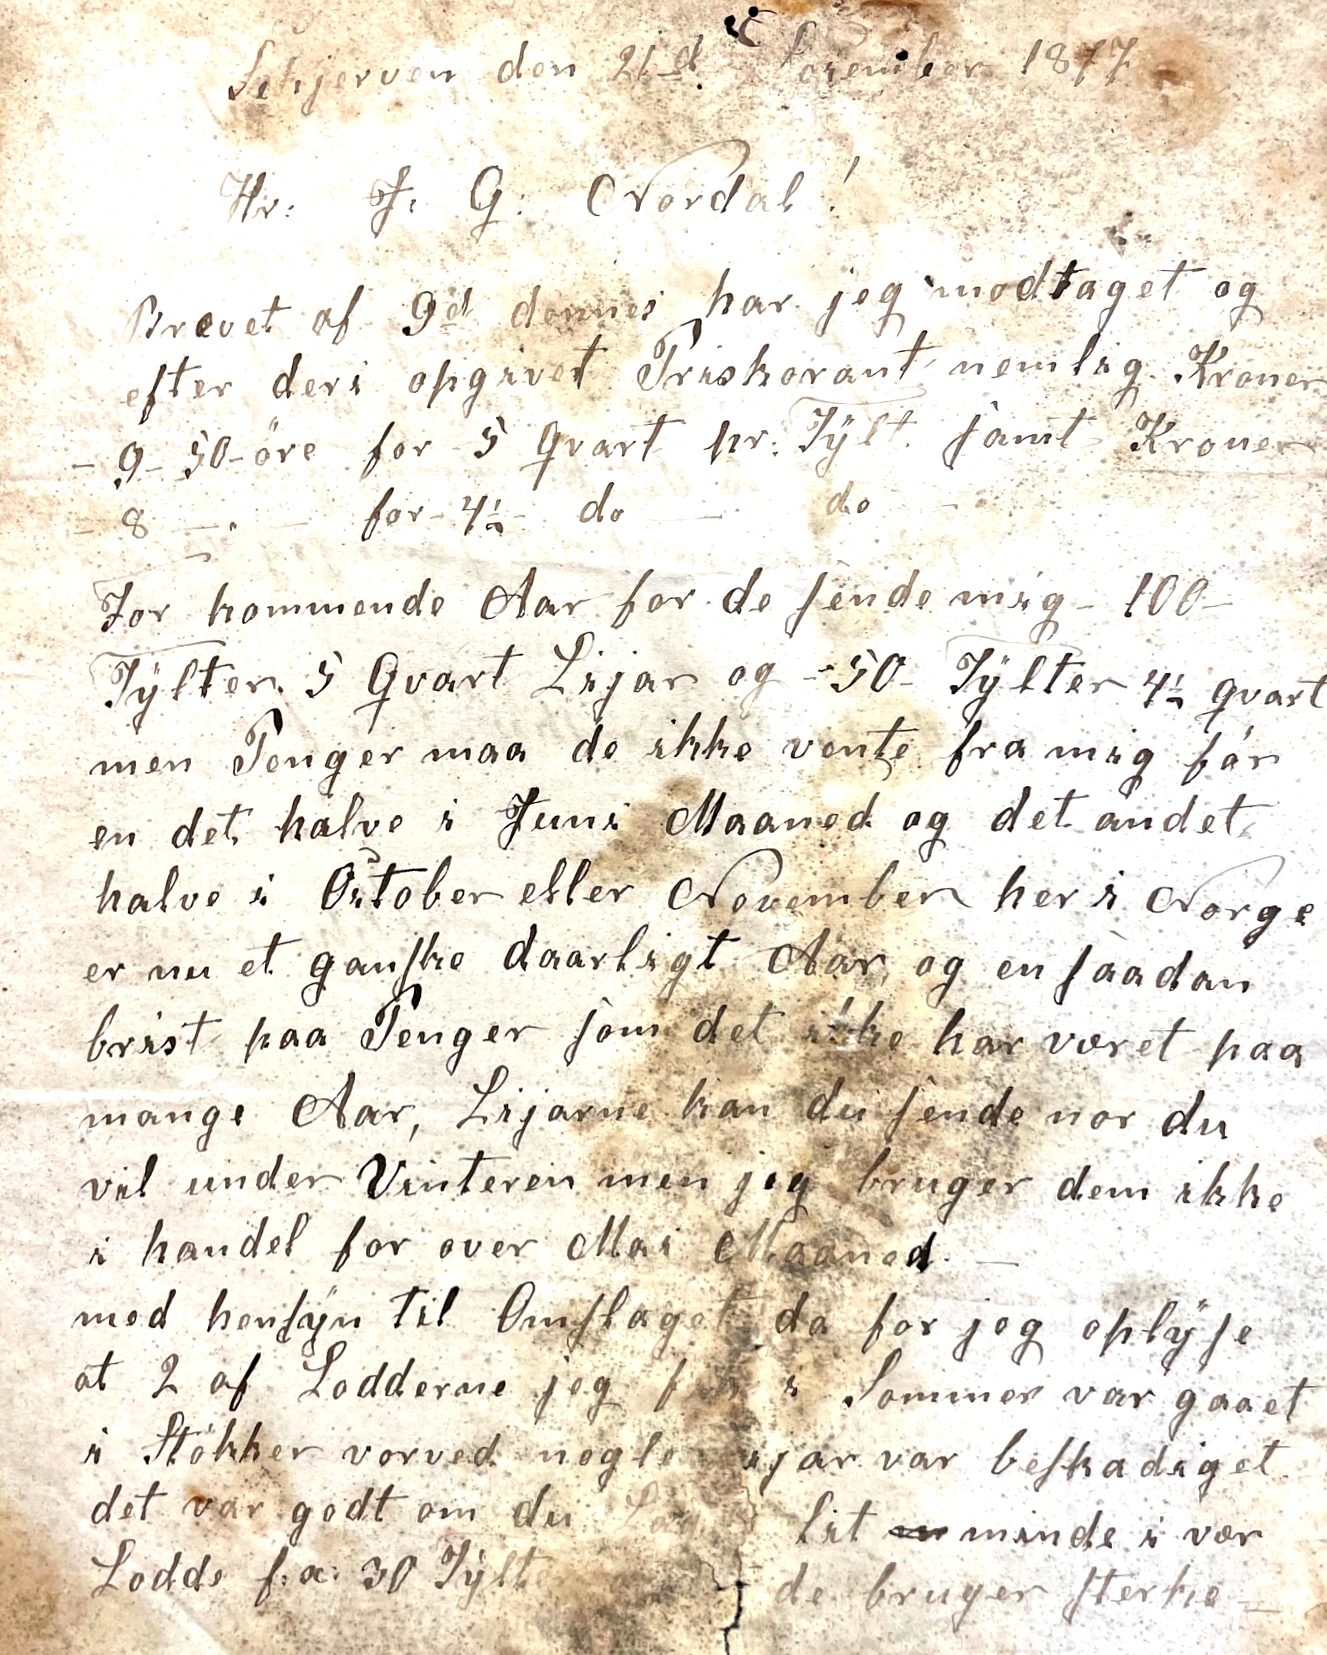 Schjerven den 21d November 1877
Hr: J: G: Nordal!
Brevet af 9d dennes har jeg modtaget og
efter deri opgivet Priskorant nemlig Kroner
- 9 - 50 - öre for 5 Qvart pr: Tÿlt samt Kroner
- 8 — " — for - 4½ - do — do — "
For kommende Aar for de sende mig - 100 -
Tÿlter 5 Qvart Lijar og - 50 - Tÿlter 4½ qvart
men Penger maa de ikke vente fra mig för
en det halve i Juni Maaned og det andet
halve i October eller November her i Norge
er nu et ganske daarligt Aar, og en saadan
brist paa Penger som det ikke har været paa
mange Aar, Lijarne kan du sende nor du
vil under Vinteren men jeg bruger dem ikke
i handel for over Mai Maaned. —
med hensÿn til Omslaget da for jeg oplÿse
at 2 af Lodderne jeg fek i Sommer var gaaet
i Stökker vorved nogle ijar var beskadiget
det var godt om du lit minde i vær
Lodde f: x: 30 Tÿlt de bruger sterke -